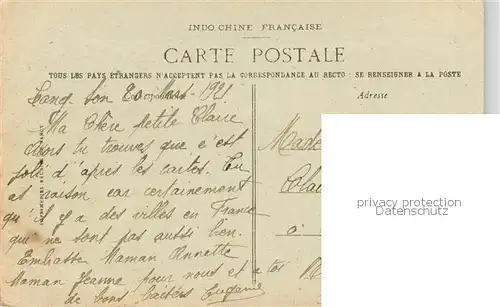 INDO-CHINE FRANÇAISE
CARTE POSTALE
TOUS LES PAYS ÉTRANGERS N'ACCEPTENT PAS LA CORRESPONDANCE AU RECTO : SE RENSEIGNER A LA POSTE
Lang-Son 20 1921
Adresse
Ma Chère petite Claire
Alors tu trouves que c'est
joli d'après les cartes. Tu
as raison car certainement
qu'il y a des villes en France
qui ne sont pas aussi bien.
Embrasse Maman Annette
Maman Jeanne pour nous et a toi
de bons baisers Eugène
Made
Cla
à
privacy protection
Datenschutz